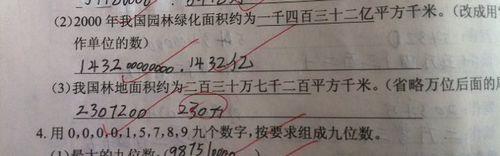 (2)2000年我国园林绿化面积约为一千四百三十二亿平方千米。(改成用
作单位的数)
143200000000 . 1432亿
(3)我国林地面积约为二百三十万七千二百平方千米。(省略万位后面的
2307200 230万
4.用0,0,0,0,1,5,7,8,9九个数字,按要求组成九位数。
(1)最大的九位数:(987510000)